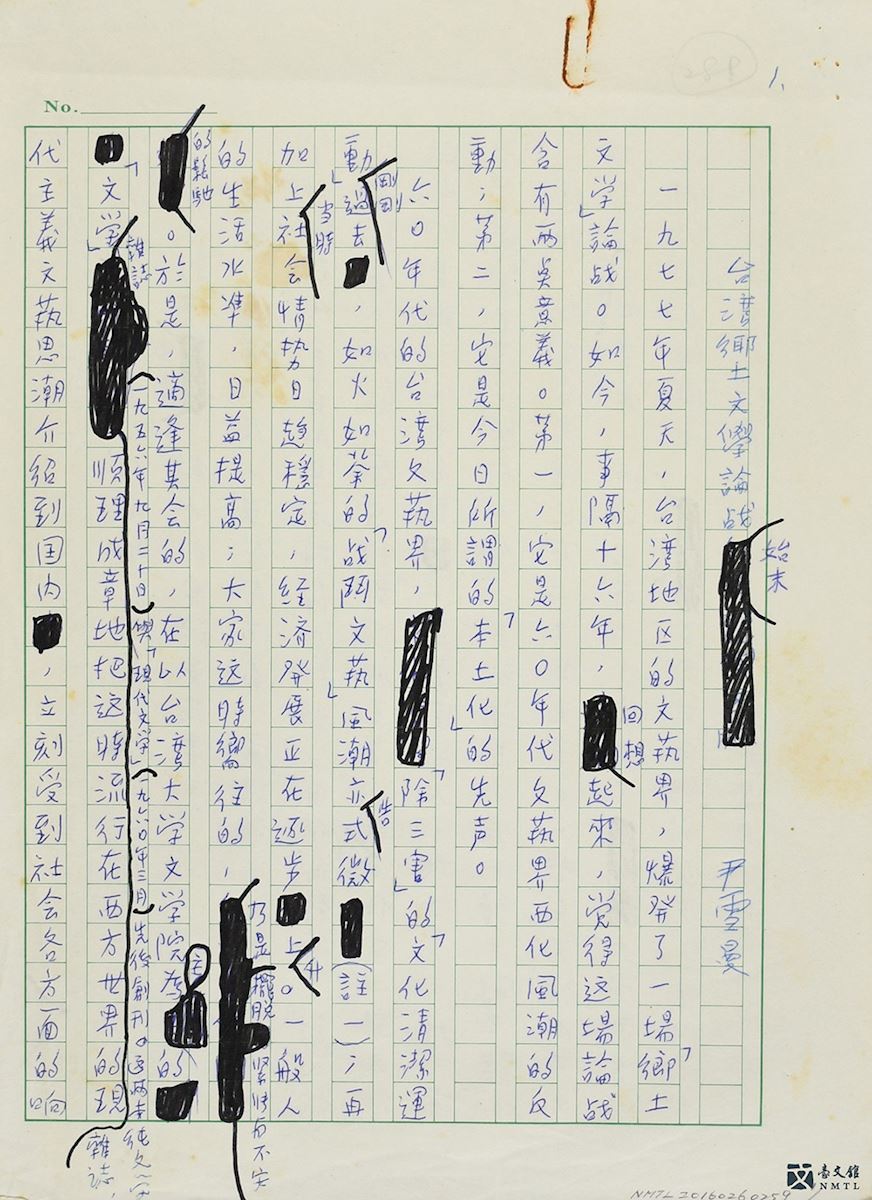 No.
288
1.
台湾鄉土文學論战始末
尹雪曼
一九七七年夏天，台湾地区的文执界，爆発了一場「鄉土
文学」論战。如今，事隔十六年，回想起來，覚得这場論战
含有两奌意義。第一，它是六〇年代文执界西化風潮的反
動；第二，它是今日所謂的「本土化」的先声。
六〇年代的台湾文执界，「除三害」的「文化清潔運
動」剛剛過去，如火如荼的「战鬥文执」風潮亦告式微（註一）；再
加上当時社会情势日趋穩定，経済発展正在逐步上升。一般人
的生活水準，日益提高；大家这時嚮往的，乃是擺脫紧张而不安
的鬆弛。於是，適逢其会的，在以台湾大学文学院為主的
「文学」雜誌（一九五六年九月二十日）與「現代文学」（一九六〇年三月）先後創刊。这两本純文学雜誌，
順理成章地把這時流行在西方世界的現
代主義文执思潮介紹到国内，立刻受到社会各方面的响
臺文館
NMTL
NMTL20160260259